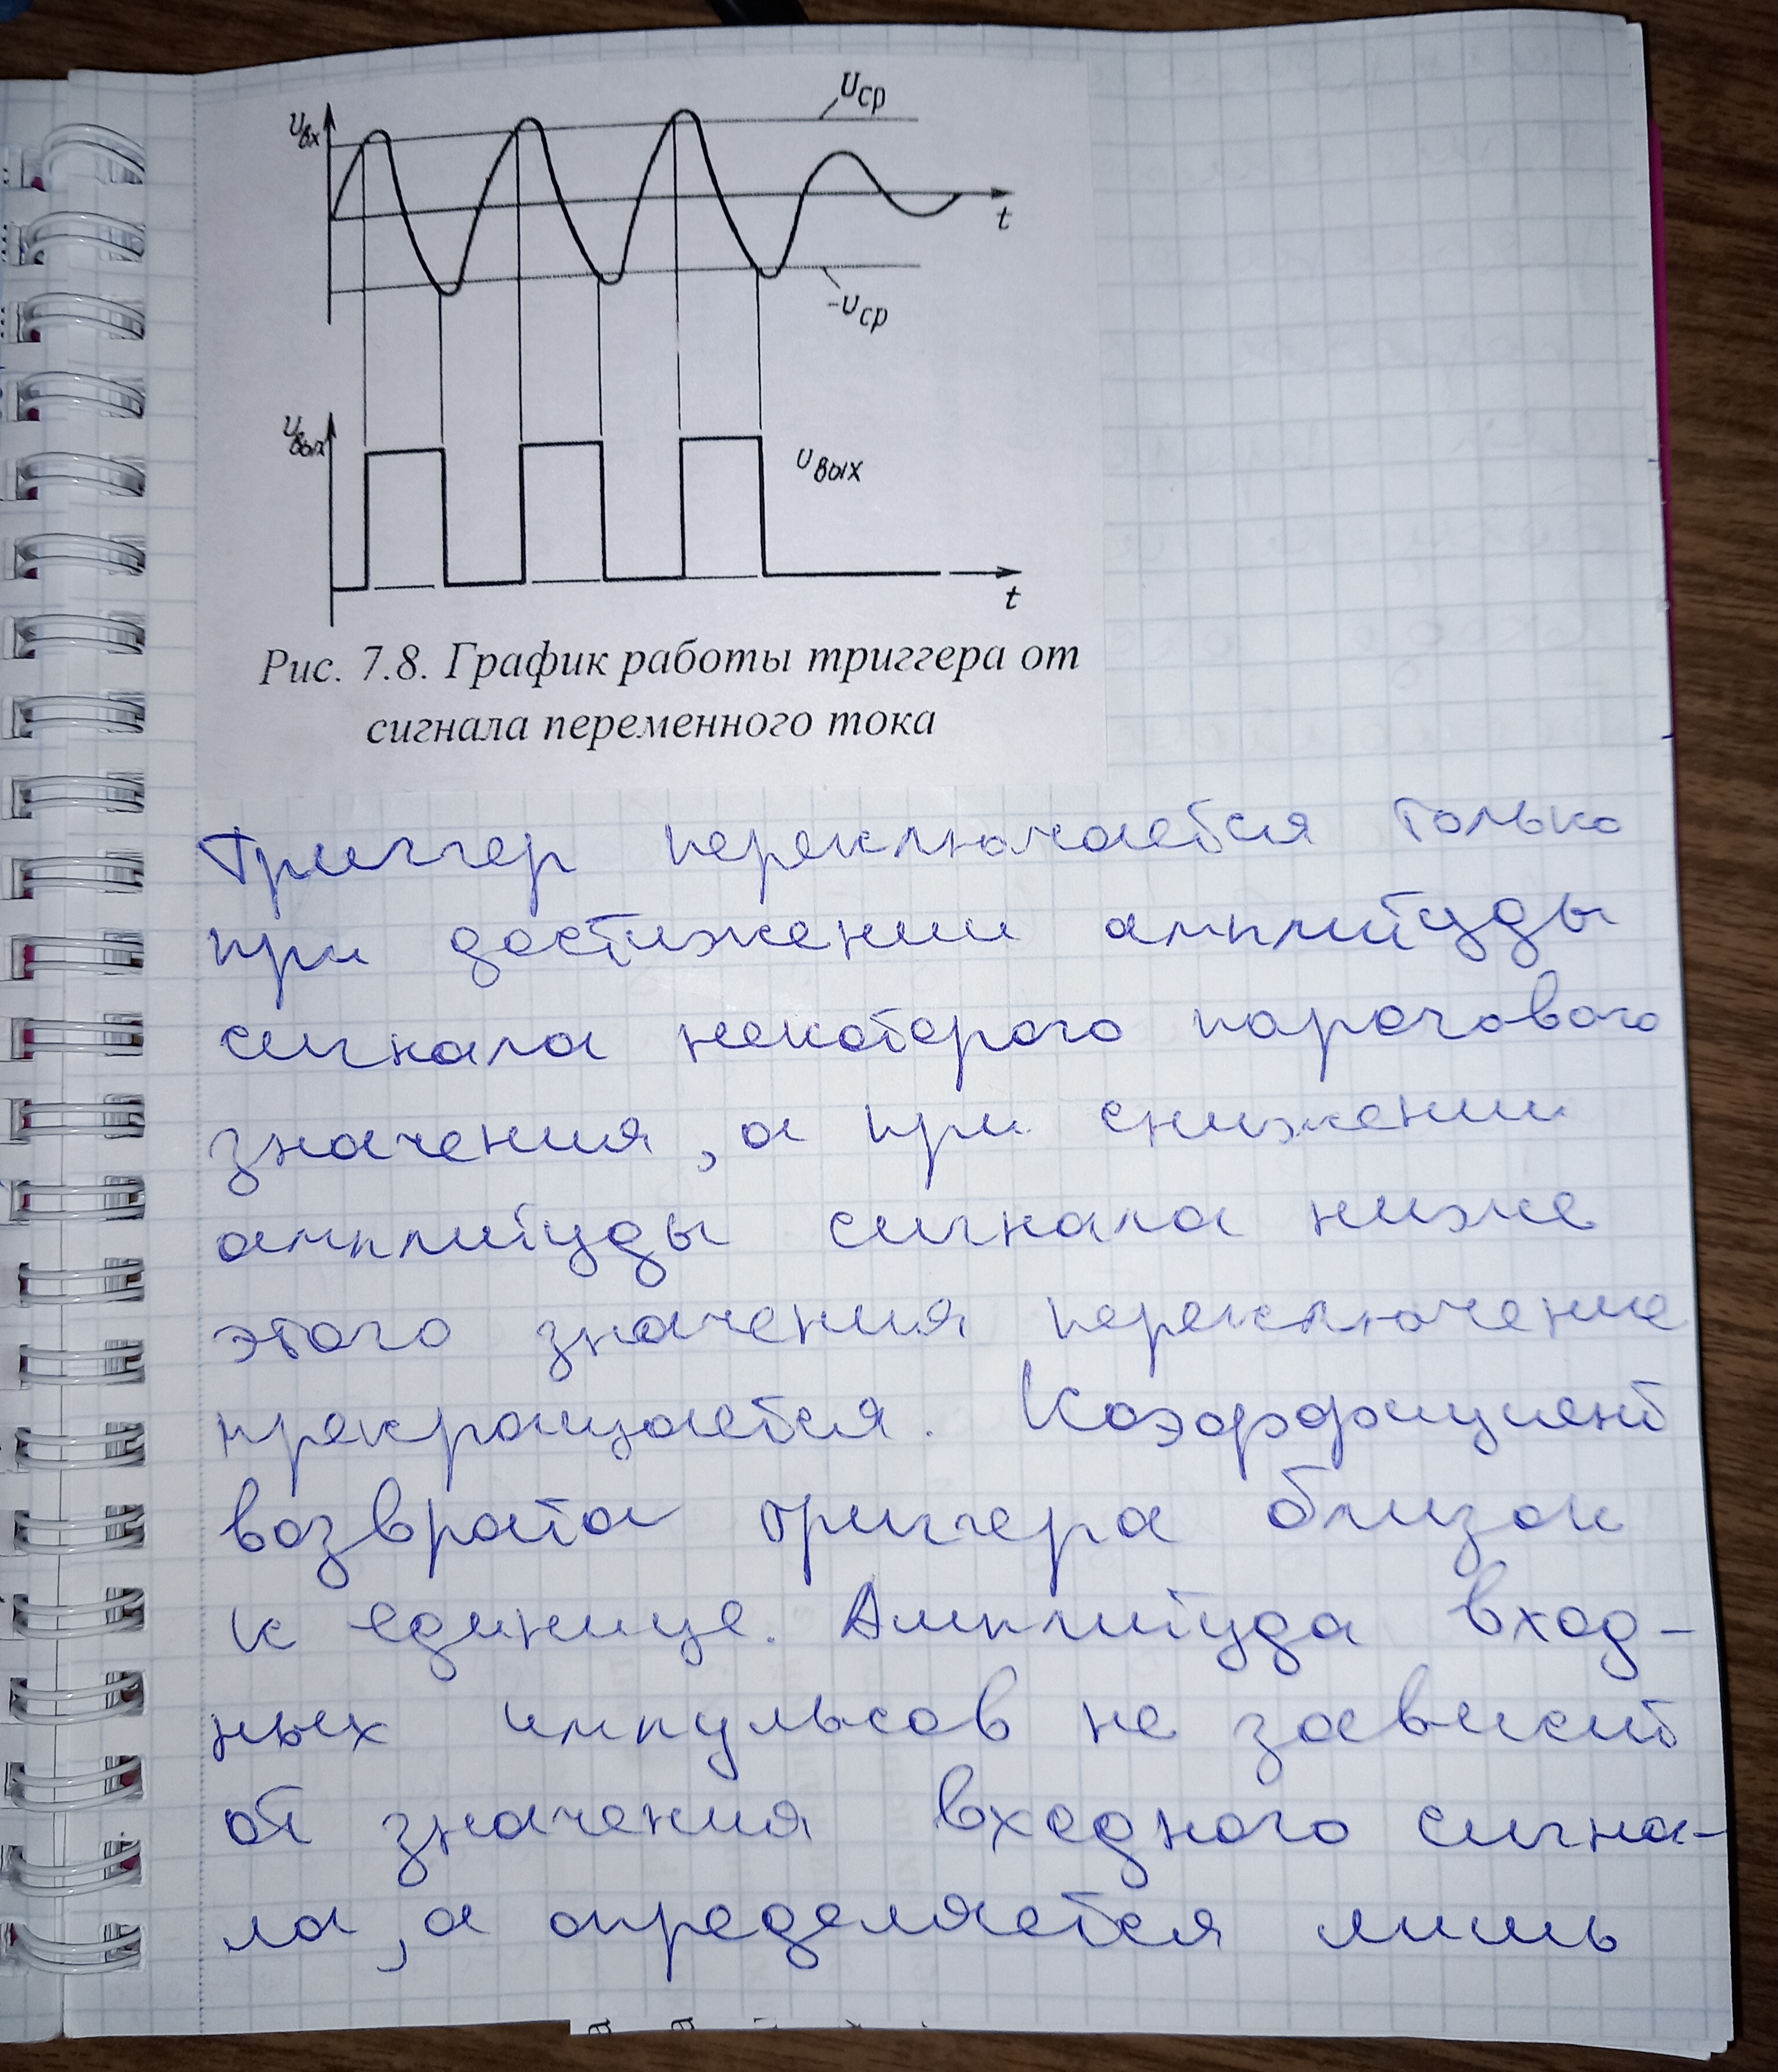 Uср
Uвх
t
-Uср
Uвых
Uвых
t
Рис. 7.8. График работы триггера от
сигнала переменного тока
Триггер переключается только
при достижении амплитуды
сигнала некоторого порогового
значения, а при снижении
амплитуды сигнала ниже
этого значения переключение
прекращается. Коэффициент
возврата триггера близок
к единице. Амплитуда вход-
ных импульсов не зависит
от значения входного сигна-
ла, а определяется лишь